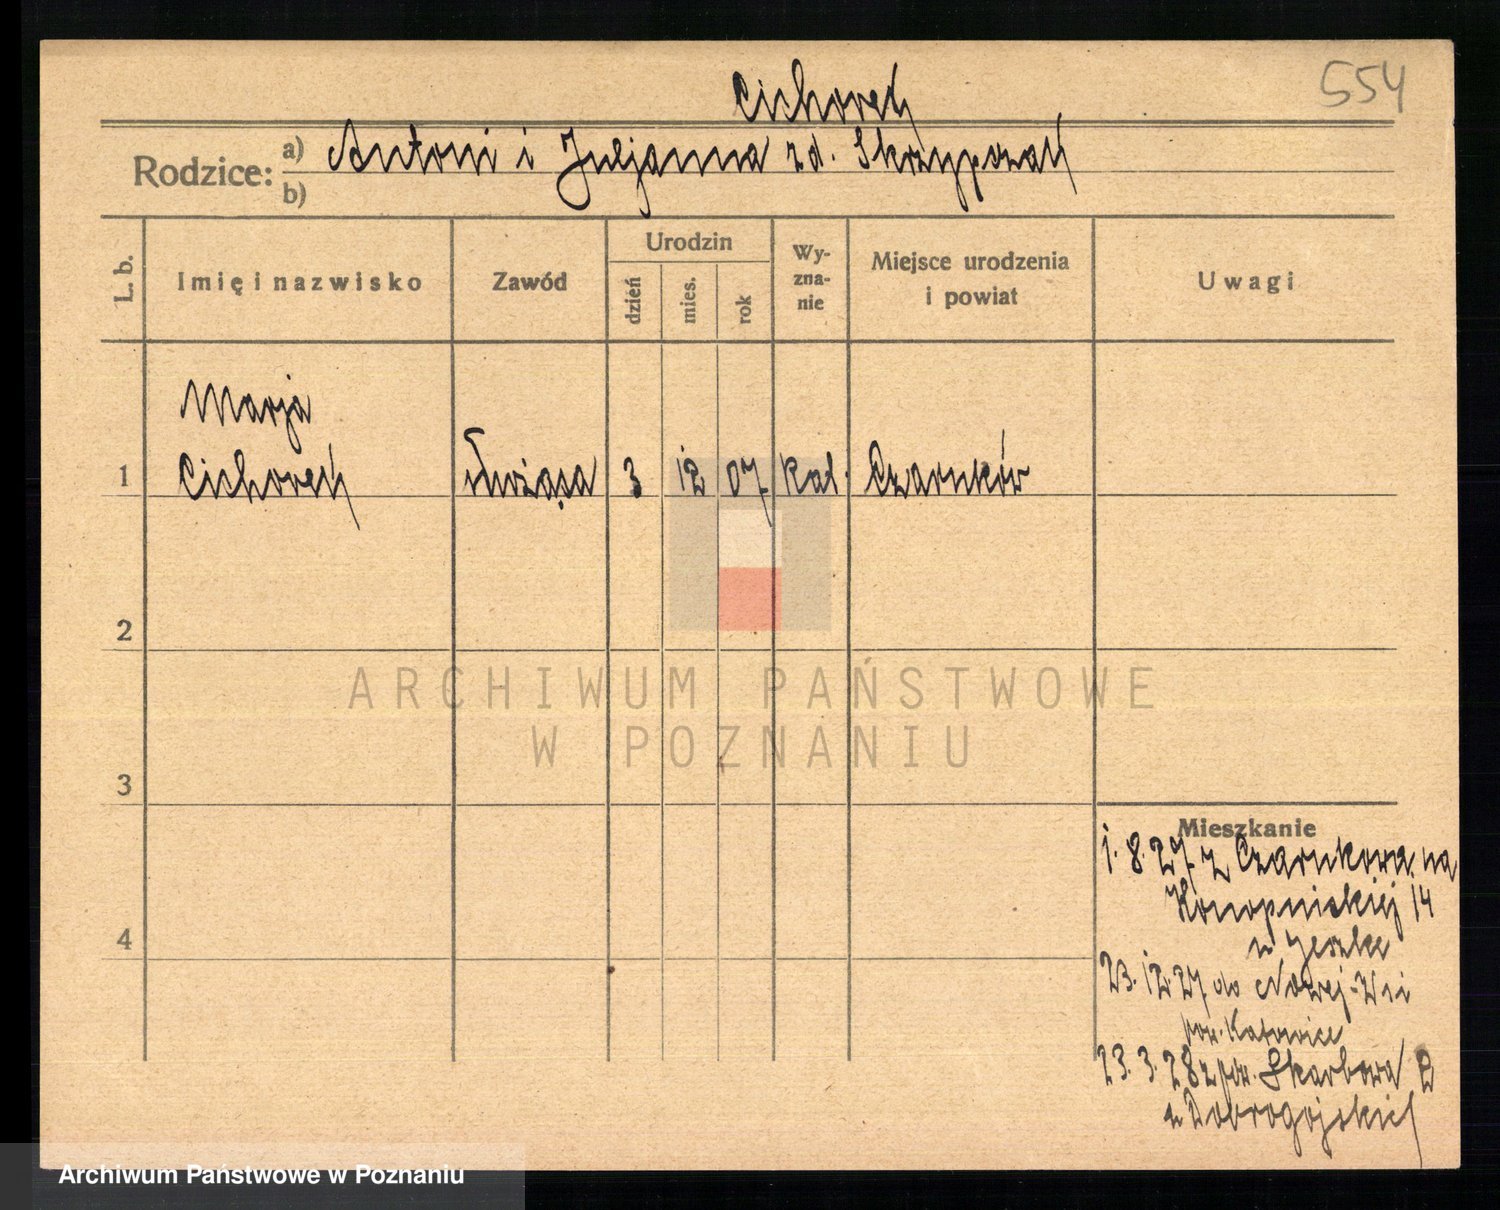 554
Cichorek
Rodzice: a) Antoni i Juljanna zd. Skrzypczak
b)
L. b. Imię i nazwisko Zawód Urodzin dzień mies. rok Wy-zna-nie Miejsce urodzenia i powiat Uwagi
Marja
1 Cichorek służąca 3 12 07 kat. Czarnków
2
ARCHIWUM PAŃSTWOWE
W POZNANIU
3
Mieszkanie
1.8.27 z Czarnkowa na
Konopnickiej 14
u Jeszke
4
23.12.27 do Nowej-Wsi
pow. Katowice
23.3.28 z pow. Skarbowa 2
u Dobrogojskiej
Archiwum Państwowe w Poznaniu